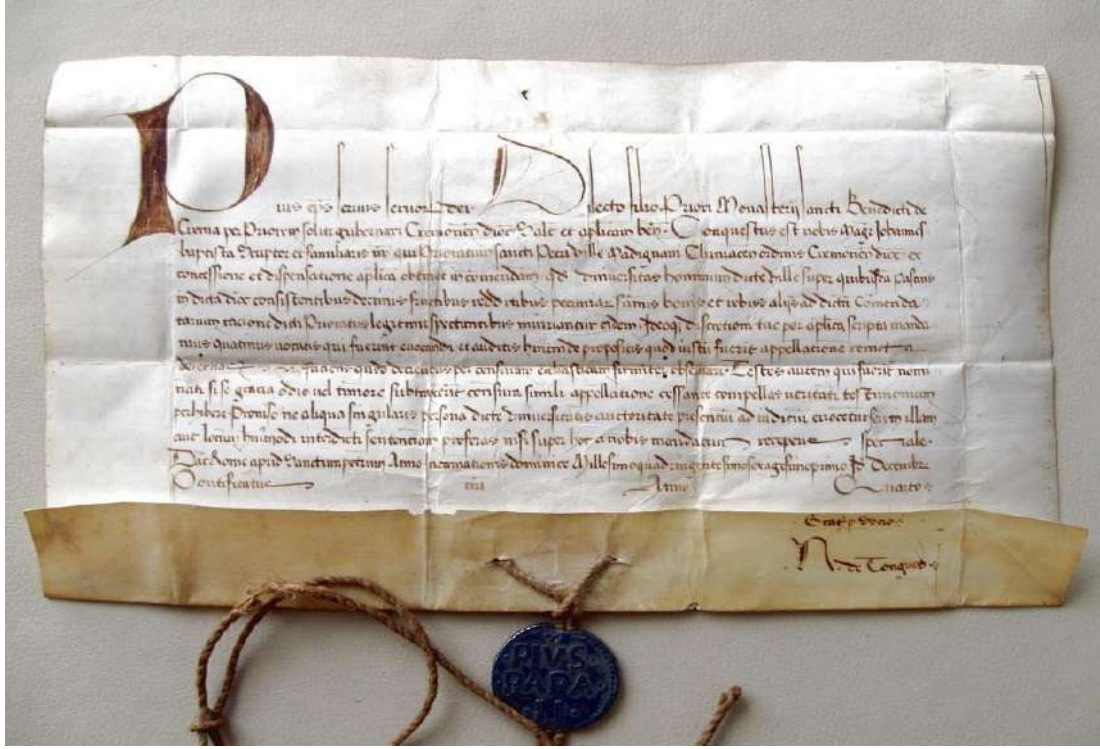 Pius eps servus servor dei Dilecto filio Priori Monasterii sancti Benedicti de
Crema per Priorem soliti gubernari Cremonen dioc Salt et aplicam ben. Conquestus est nobis Magr Iohannes
baptista et familiaris nr qui Prioratum sancti Petri ville Madignani Cluniacen ordinis Cremonen dioc ex
concessione et dispensatione aplica obtinet in comendam qd universitas hominum dicte ville super quibusda
in dicta dioc consistentibus decimis fructibus redditibus pecuniar sumis bonis et rebus aliis ad dictu Comenda
tarium racione dicti Prioratus legitime spectantibus iniuriantur eidem. Ideoq discretioni tue per aplica scripta manda
mus quatinus vocatis qui fuerint evocandi et auditis hincinde propositis quod iustu fuerit appellatione remota
decernas faciens quod decreveris per censuram ecclesiasticam firmiter observari. Testes autem qui fuerit nomi
nati si se gracia odio vel timore subtraxerint censura simili appellatione cessante compellas veritati testimonium
perhibere. Proviso ne aliqua singularis persona dicte universitatis auctoritate presentiu ad iudiciu evocetur seu in illam
aut locum huiusmodi interdicti sententiam proferas nisi super hoc a nobis mandatum receperis speciale.
Dat Rome apud Sanctumpetrum Anno incarnationis dominice Millesimoquadringentesimosexagesimoprimo Id Decembr
Pontificatus nri Anno Quarto
N. de Tongues
PIVS
PAPA
II